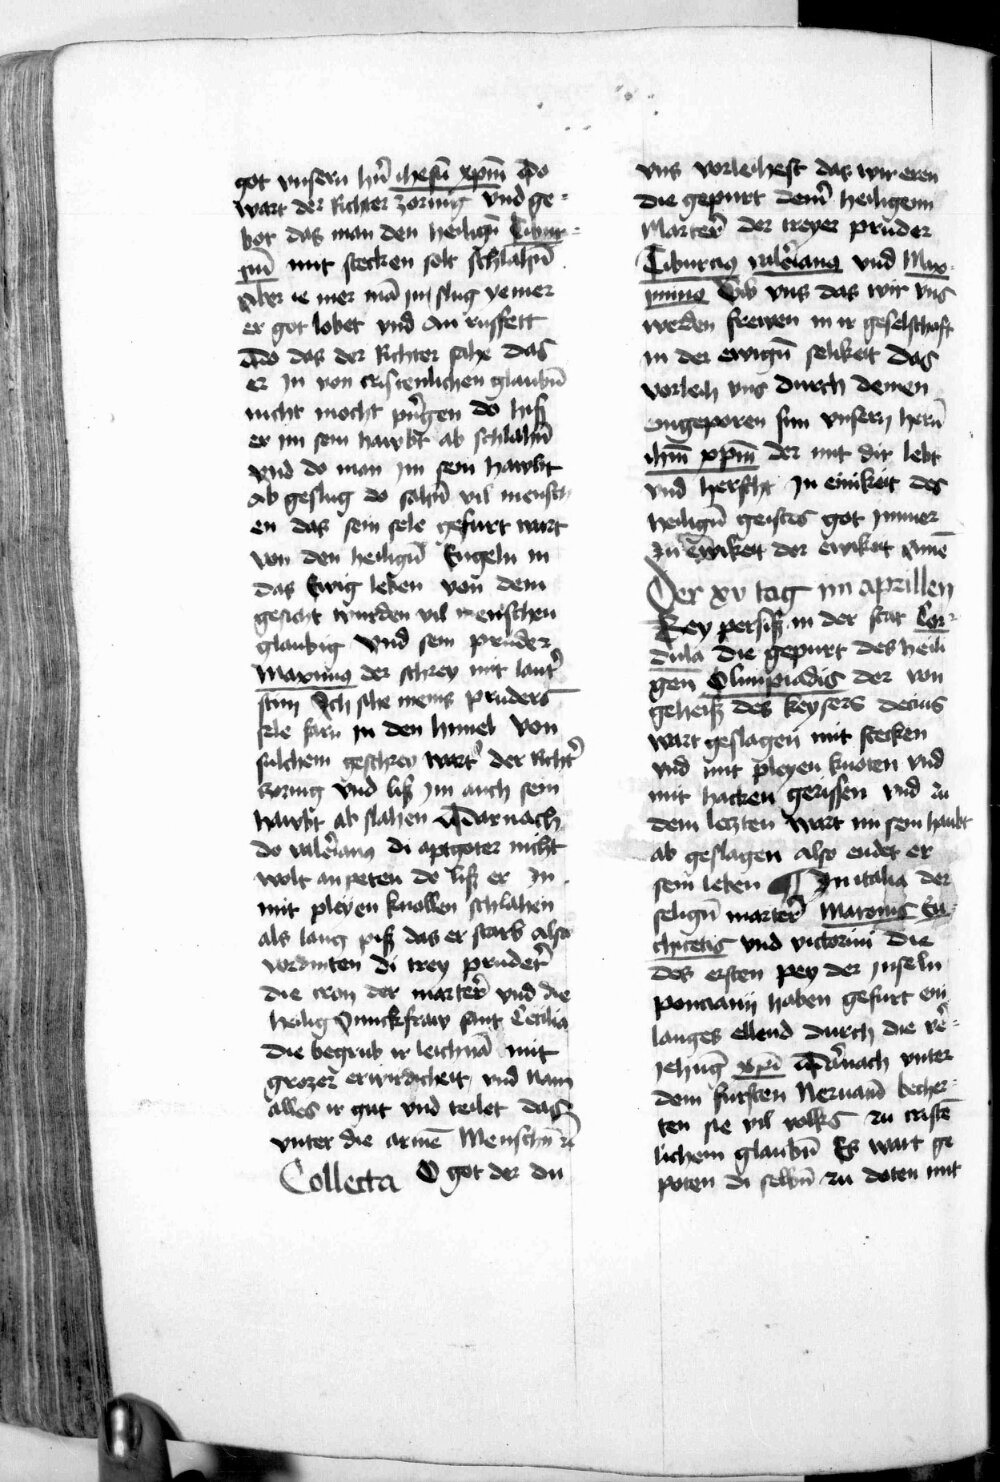 got vnsern hr̄n ihesū xp̄m Do
wart der Richter zornig vnd ge-
bot das man den heiligē Tibur-
ciū mit stecken solt schlahn̄
Aber ie mer mā jm slug ye mer
er got lobet vnd an ruffett
Do das der Richter sahe das
er jn von cristenlichen glaubn̄
nicht mocht pr̄gen do hiß
er im sein hawbt ab schlahn̄
vnd do man jm sein hawbt
ab geslug do sahn̄ vil mensch
en das sein sele gefurt wart
von den heiligē Engeln in
das Ewig leben von dem
gesicht wurden vil menschen
glaubig vnd sein pruder
Maximus der schrey mit laut̄
stim Ich sihe meins pruders
sele farn jn den himel von
sulchem geschrey wart der richt̄
zornig vnd liß jm auch sein
hawbt ab slahen Darnach
do valeriang di aptgoter nicht
wolt an peten do liß er jn
mit pleyen knollen schlahen
als lang piß das er starb also
vordinten di trey pruder
die cron der marter̄ vnd die
heilig Junckfraw sant Cecilia
die begrub ir leichnā mit
grozer erwirdicheit vnd nam
alles ir gut vnd teilet das
vnter die armē Menschn̄
Collecta O got der du
vns vorleihest das wir eren
die gepurt deinr̄ heiligenn
Marter̄ der treyer pruder
Tiburcig valeriang vnd Max-
iming Gib vns das wir vns
werden frewen in ir geselschaft
in der ewigē selikeit das
vorleih vns durch deinen
eingeporen sun vnsern herr̄
ihm̄ xpm̄ der mit dir lebt
vnd herscht jn einikeit des
heiligē geistes got jmmer
zu ewikeit der ewikeit Amē
Der xv tag im aprillen
Bey persiß in der stat Cor-
dula die gepurt des heili
gen Olimpiadis der von
geheiß des keysers decius
wart geslagen mit stecken
vnd mit pleyen knoten vnd
mit hacken gerissen vnd zu
dem leczten wart im sein haubt
ab geslagen also endet er
sein leben ¶ In italia der
seligē marter̄ Maronis Eu-
thicetis vnd victorini die
des ersten pey der jnseln
poncianij haben gefurt ein
langes ellend durch die v̄e-
jehung xp̄i Darnach vnter
dem fursten Neruanū becher-
ten sie vil volks zu cristē
lichem glaubn̄ Es wart ge
poten di selbn̄ zu doten mit